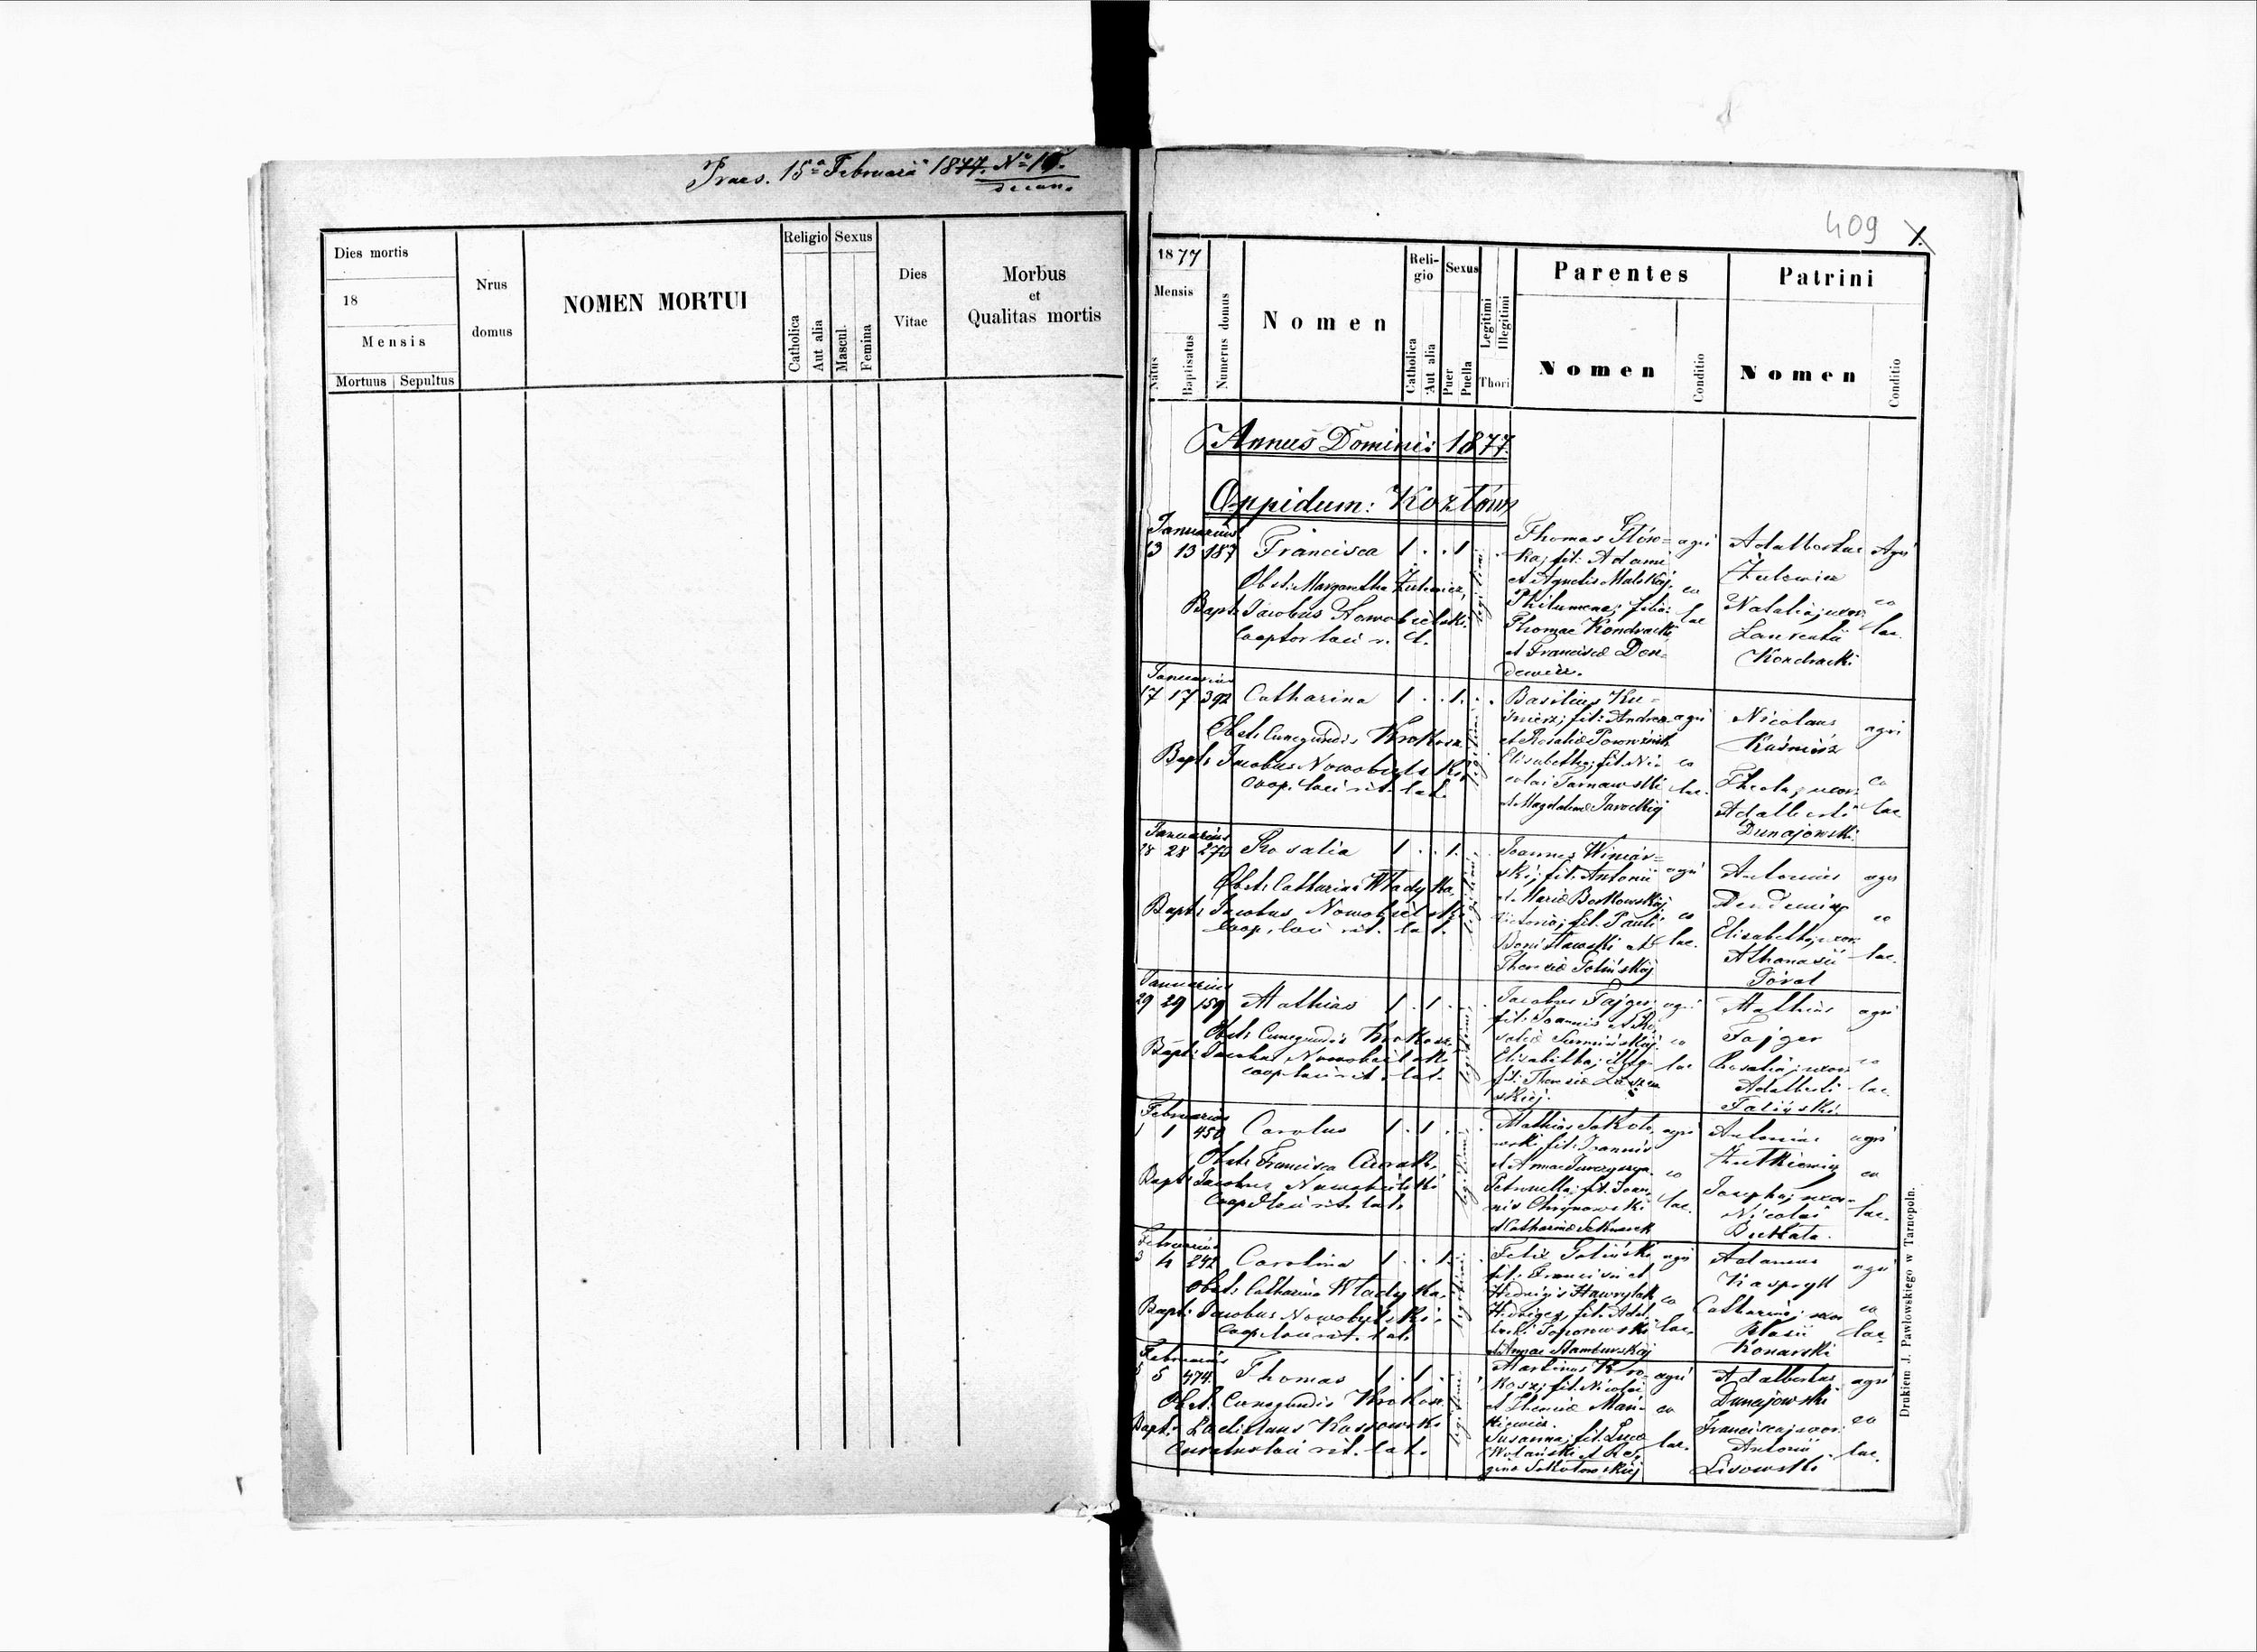 Praes. 15ª Februarii 1877. Nº 10.
decan.
Dies mortis
18
Mensis
Mortuus
Sepultus
Nrus
domus
NOMEN MORTUI
Religio
Catholica
Aut alia
Sexus
Mascul.
Femina
Dies
Vitae
Morbus
et
Qualitas mortis
409
1.
1877
Mensis
Natus
Baptisatus
Numerus domus
Nomen
Religio
Catholica
Aut alia
Sexus
Puer
Puella
Legitimi
Illegitimi
Thori
Parentes
Nomen
Conditio
Patrini
Nomen
Conditio
Annus Domini 1877.
Oppidum: Kozłów
Januarius
13 13 187 Francisca 1 . . 1 .
Obst: Margaretha
Bapt: Jacobus Nowobielski
Cooptor loci r. l.
legitimi
Thomas
fil: Adami
et Agnetis
Philumena; filia
Thomae Kondracki
et Franciscae Den=
dewicz.
agri
co
lae
Adalbertus
Natalia; uxor
Laurentii
Kondracki
Agri
co
lae.
Januarius
17 17 392 Catharina 1 . . 1 .
Obst: Cunegundis Krokosz
Bapt: Jacobus Nowobielski
Coop. loci rit. lat.
legitimi
Basilius Ku=
śnierz; fil: Andreae
et Rosaliae
Elisabetha; fil. Ni=
colai Tarnawski
et Magdalenae Jarockiej
agri
co
lae.
Nicolaus
Kuśnierz
Thecla; uxor
Adalberti
Dunajowski.
agri
co
lae
Januarius
28 28 275 Rosalia 1 . . 1 .
Obst: Catharina Władyka
Bapt: Jacobus Nowobielski
Coop. loci rit. lat.
legitimi
Joannes Winiar=
ski; fil. Antonii
et Mariae Borkowskiej
Victoria; fil. Pauli
Bonisławski et
Theresiae Golińskiej
agri
co
lae.
Antonius
Elisabetha; uxor
Athanasii
Góral
agri
co
lae.
Januarius
29 29 159 Mathias 1 . 1 . .
Obst: Cunegundis Krokosz
Bapt: Jacobus Nowobielski
coop. loci rit. lat.
legitimi
Jacobus Fajger
fil: Joannis et Ro=
saliae
Elisabetha; illeg.
fil: Theresiae
skiej.
agri
co
lae
Mathias
Fajger
Rosalia; uxor
Adalberti
agri
co
lae.
Februarius
1 1 450 Carolus 1 . 1 . .
Obst: Francisca
Bapt: Jacobus Nowobielski
Coop. loci rit. lat.
legitimi
Mathias Sokoło=
wski, fil. Joannis
et Annae
Petronella; fil. Joan=
nis
et Catharinae
agri
co
lae.
Antonius
Żutkiewicz
Josepha; uxor
Nicolai
agri
co
lae.
Februarius
3 4 242 Carolina 1 . . 1 .
Obst: Catharina Władyka
Bapt: Jacobus Nowobielski
Coop loci rit. lat.
legitimi
Felix Goliński
fil: Francisci et
Hedvigis Hawrylak
Hedviges, fil. Adal=
berti Toporowski
et Annae
agri
co
lae.
Adamus
Kaspryk
Catharina; uxor
Blasii
Konarski
agri
co
lae.
Februarius
5 5 474 Thomas 1 . 1 . .
Obst: Cunegundis Krokosz
Bapt: Ladislaus Kassowski
Curatus loci rit. lat.
legitimi
Martinus Kro=
kosz; fil. Nicolai
et Theresiae Man=
kiewicz.
Susanna; fil. Lucae
Wolański et Re=
ginae Sokołowskiej
agri
co
lae.
Adalbertus
Dunajowski
Francisca; uxor
Antonii
Lisowski
agri
co
lae.
Drukiem J. Pawłowskiego w Tarnopolu.